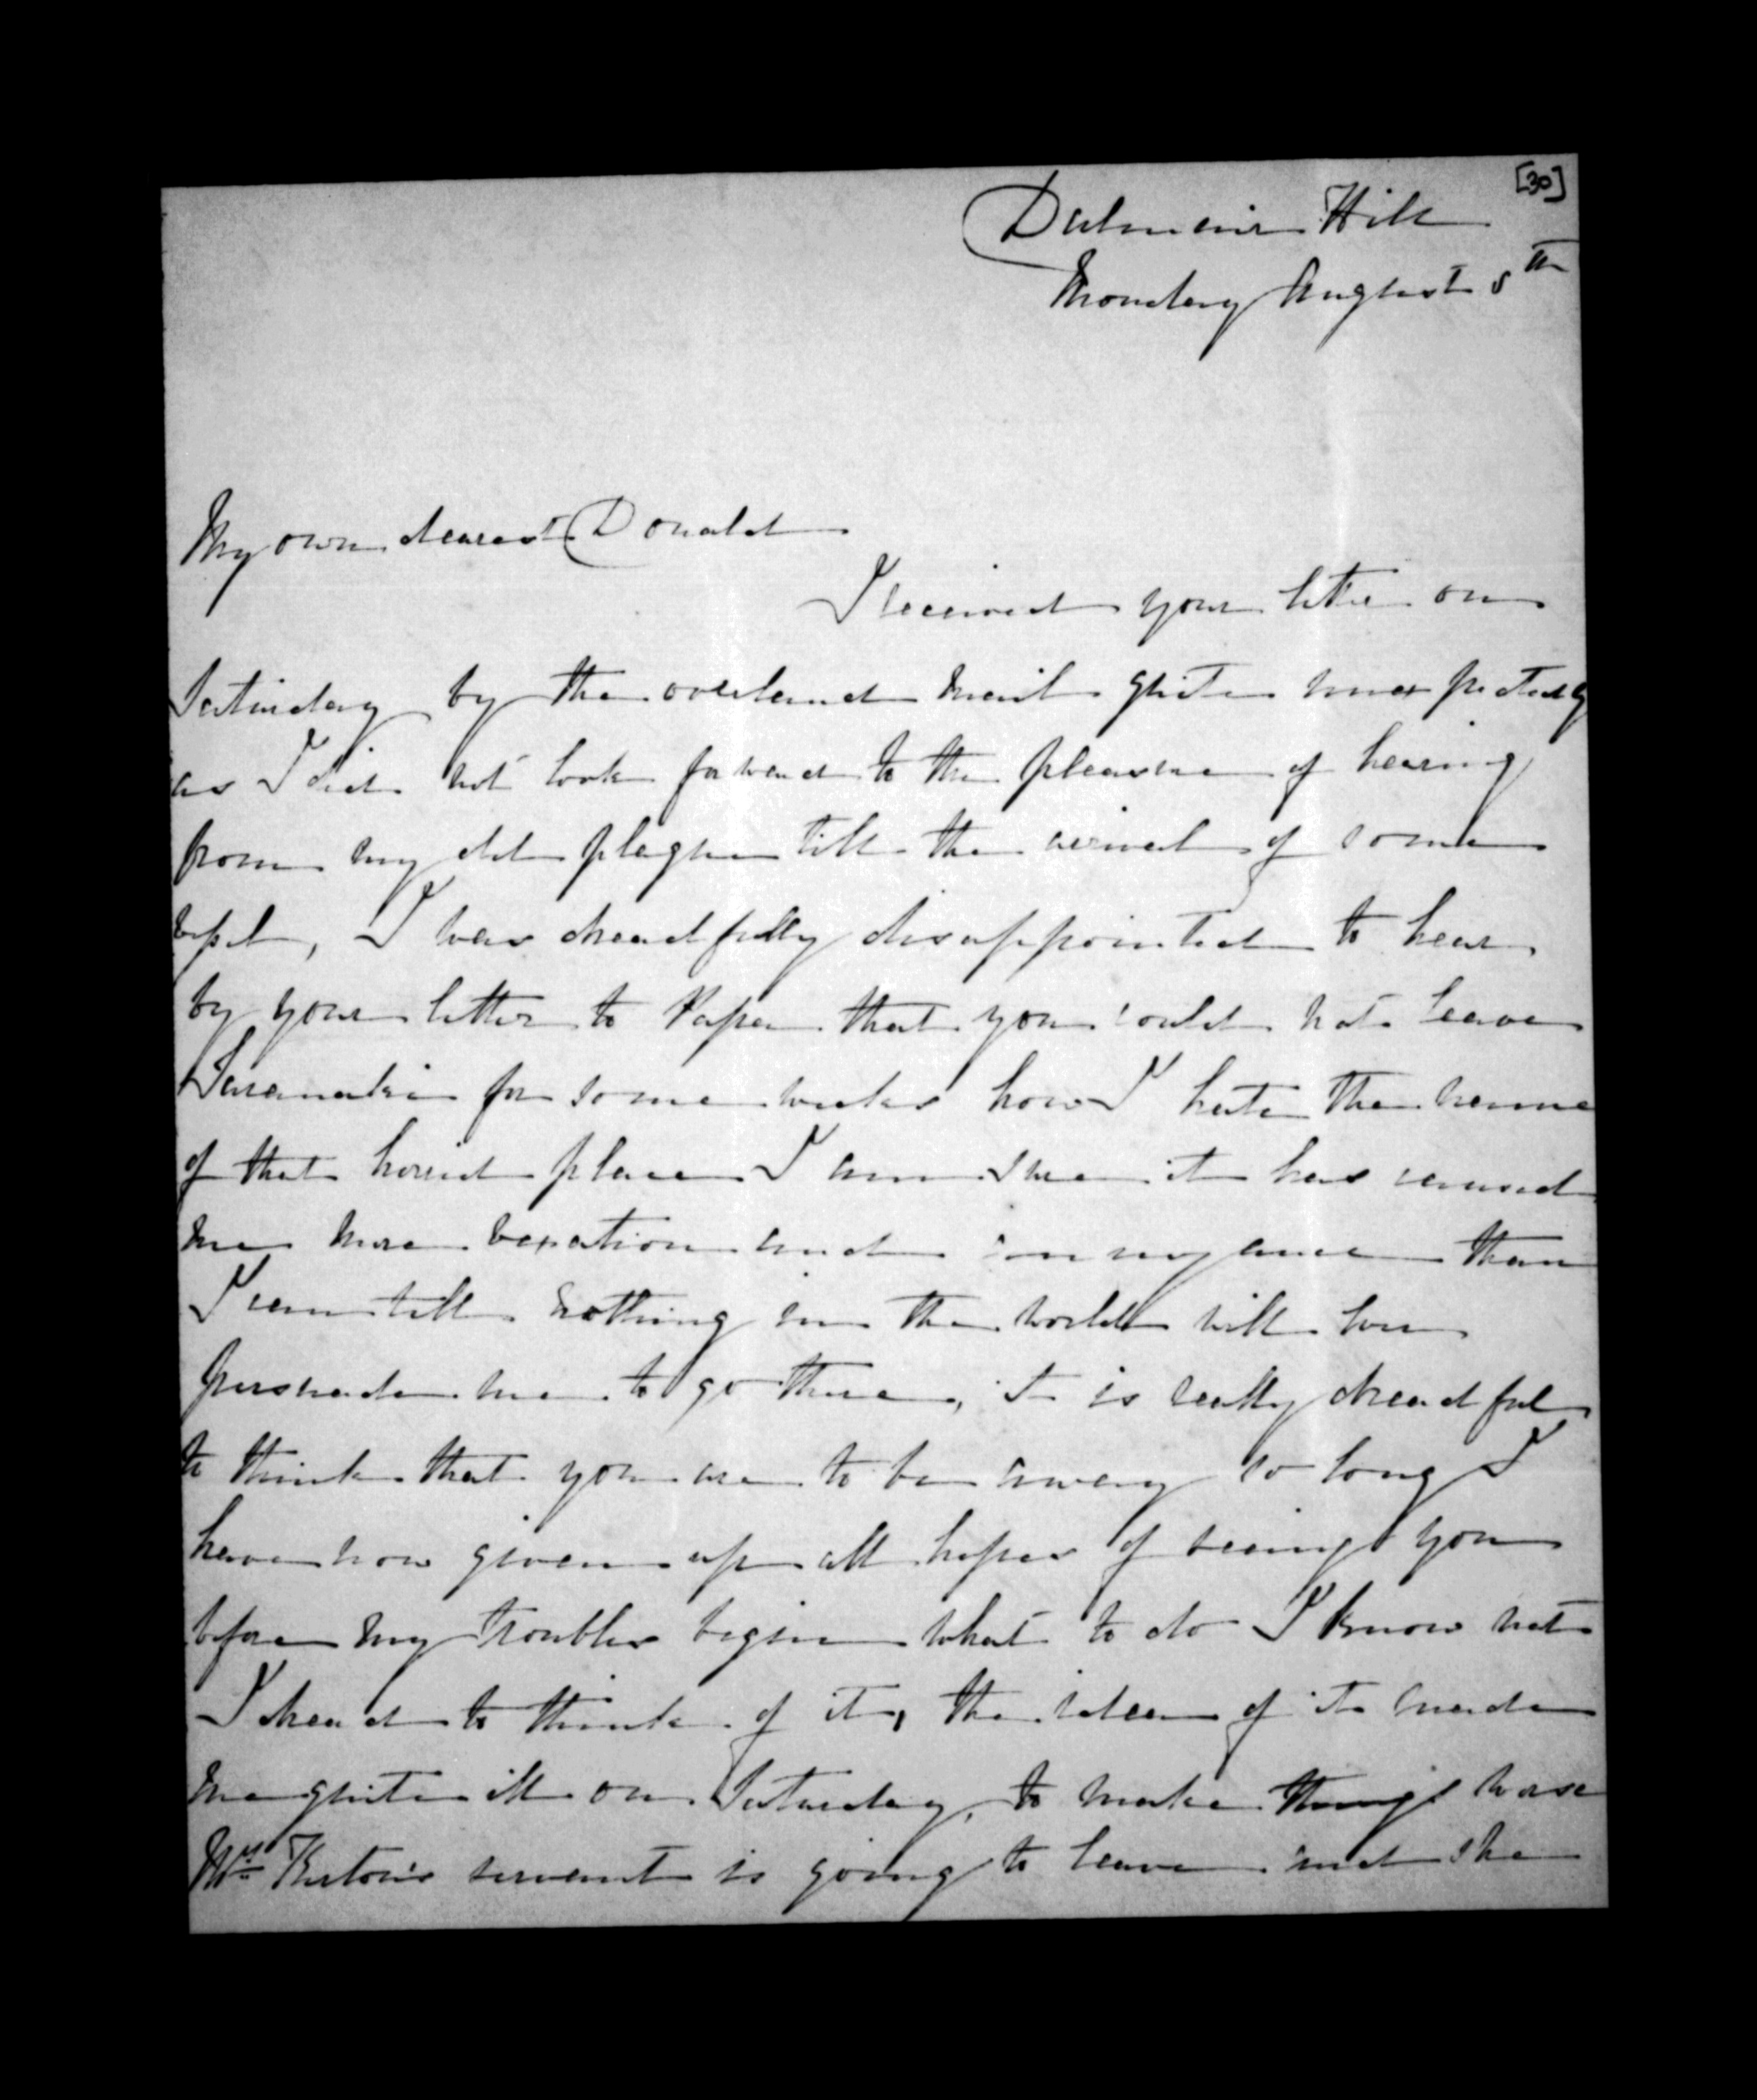 [30]
Dalmain Hill
Monday August 5th
My own dearest Donald
I received your letter on
Saturday by the overland mail quite unexpectedly
as I did not look forward to the pleasure of hearing
from my old plague till the arrival of some
vessel, I was dreadfully disappointed to hear
by your letter to Papa that you could not leave
Taranaki for some weeks how I hate the name
of that horrid place I am sure it has caused
me more vexation and annoyance than
I can tell nothing in the world will ever
persuade me to go there, it is really dreadful
to think that you are to be away so long I
have now given up all hopes of seeing you
before my troubles begin what to do I know not
I dread to think of it, the idea of it made
me quite ill on Saturday, to make things worse
Mrs servant is going to leave and she